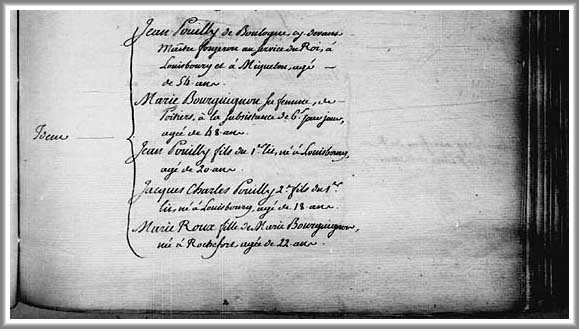 Jean Pouilly de Boulogne, cy devant
Maitre forgeron au service du Roi, à
Louisbourg et à Miquelon, agé
de 54 ans.
Marie Bourguignon sa femme, de
Poitiers, à la subsistance de 6s. par jour,
agée de 48 ans.
Idem
Jean Pouilly fils du 1er lit, né à Louisbourg,
agé de 20 ans.
Jacques Charles Pouilly 2e fils du 1er
lit, né à Louisbourg, agé de 18 ans.
Marie Roux fille de Marie Bourguignon,
née à Rochefort agée de 22 ans.